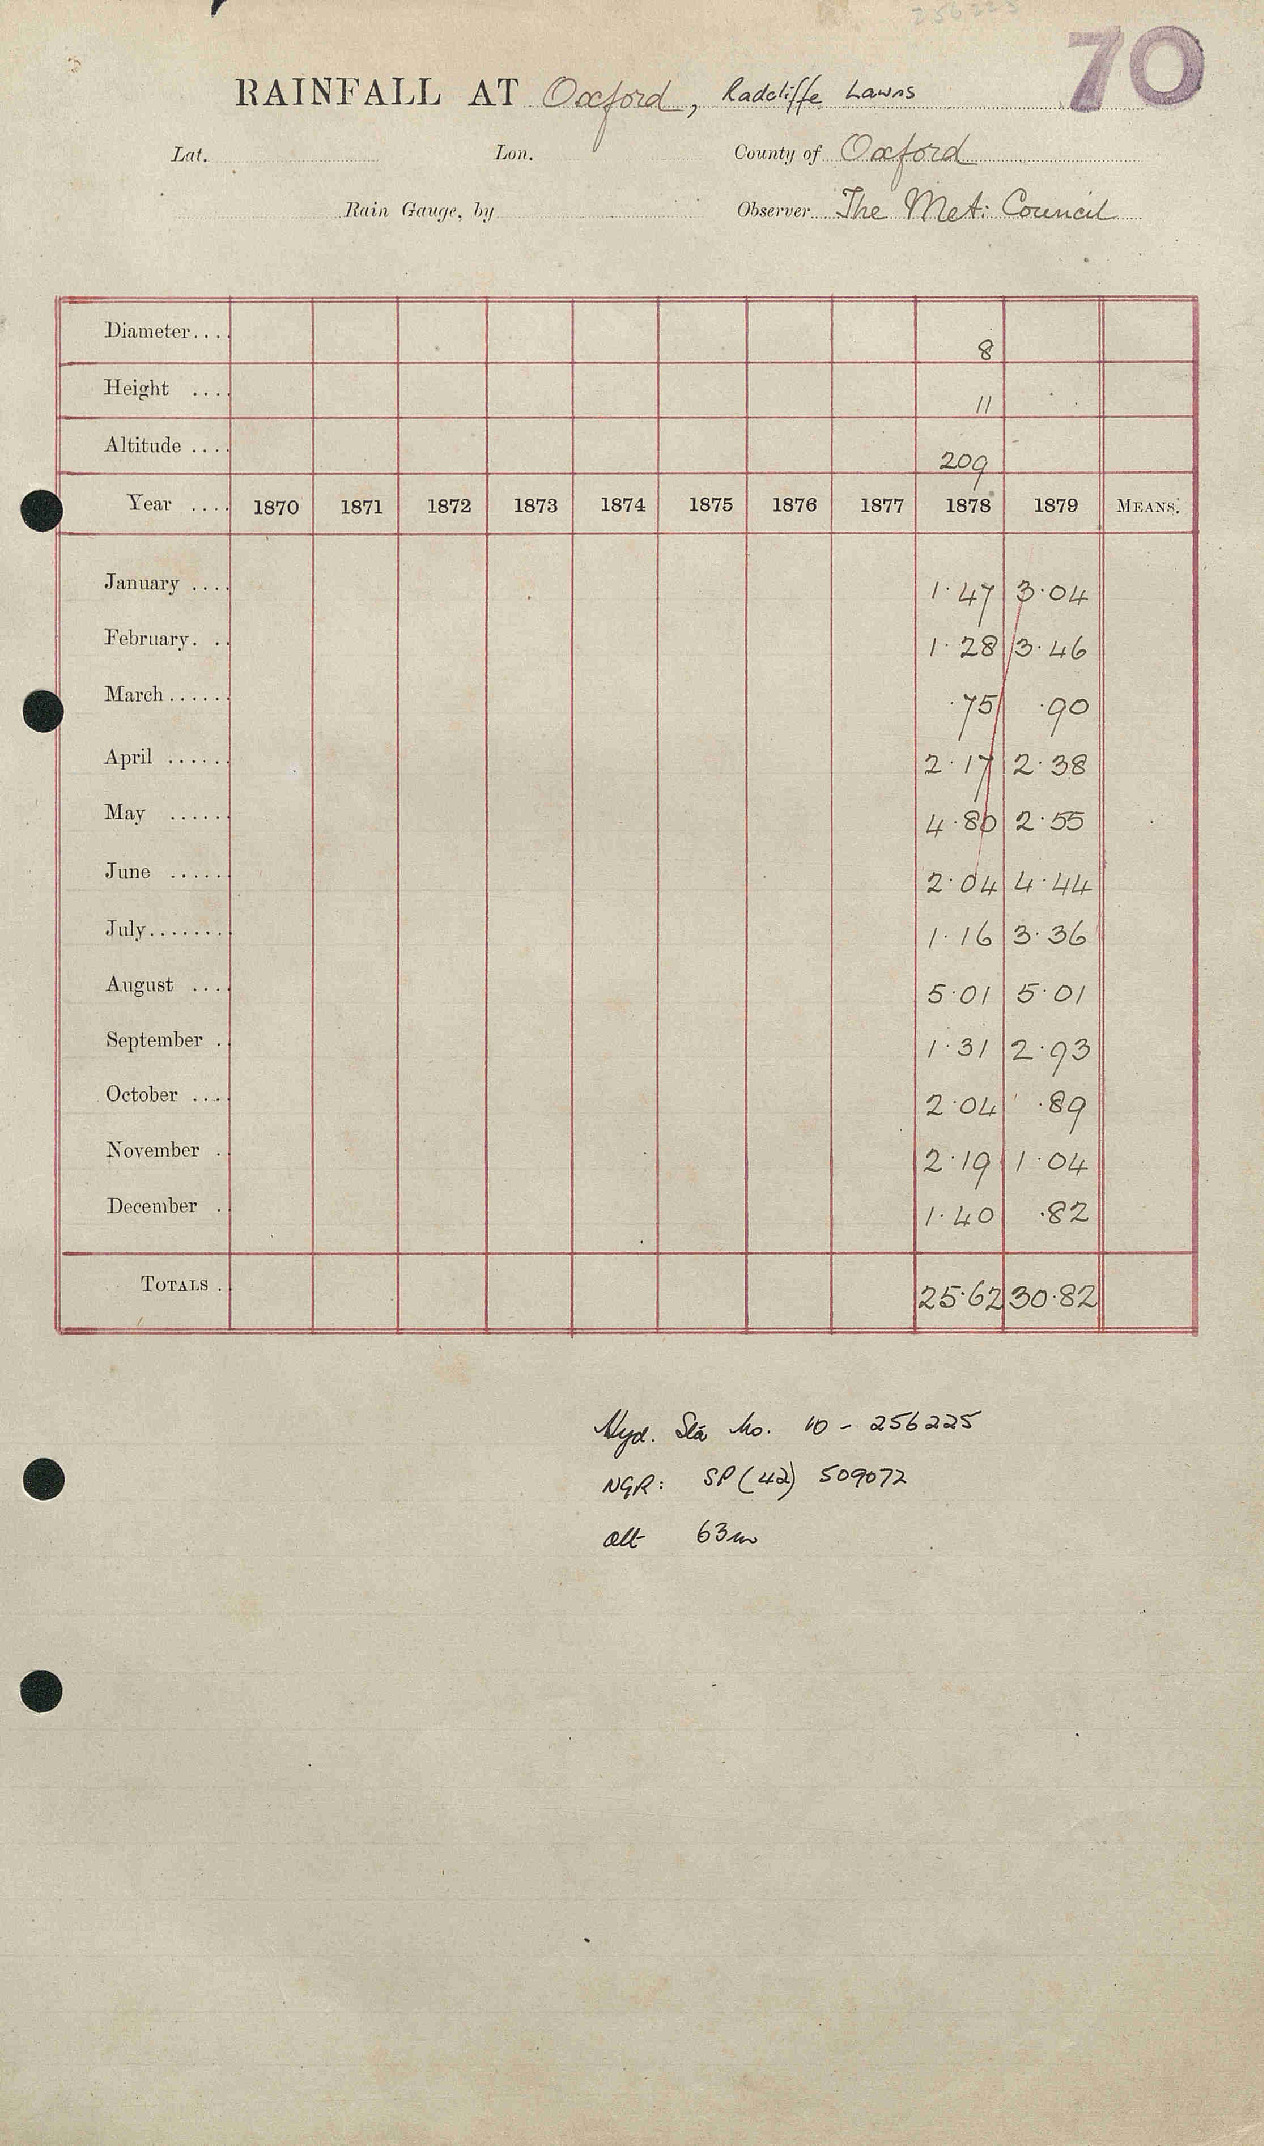 256225
70
RAINFALL AT Oxford, Radcliffe Lawns
Lat. Lon. County of Oxford
Rain Gauge, by Observer The Met: Council
Diameter.... 8
Height .... 11
Altitude .... 209
Year .... 1870 1871 1872 1873 1874 1875 1876 1877 1878 1879 MEANS.
January .... 1.47 3.04
February. .. 1.28 3.46
March...... .75 .90
April ...... 2.17 2.38
May ...... 4.80 2.55
June ..... 2.04 4.44
July....... 1.16 3.36
August .... 5.01 5.01
September . 1.31 2.93
October .... 2.04 .89
November . 2.19 1.04
December . 1.40 .82
TOTALS . 25.62 30.82
Hyd. Sta No. 10 - 256225
NGR: SP (42) 509072
alt 63m